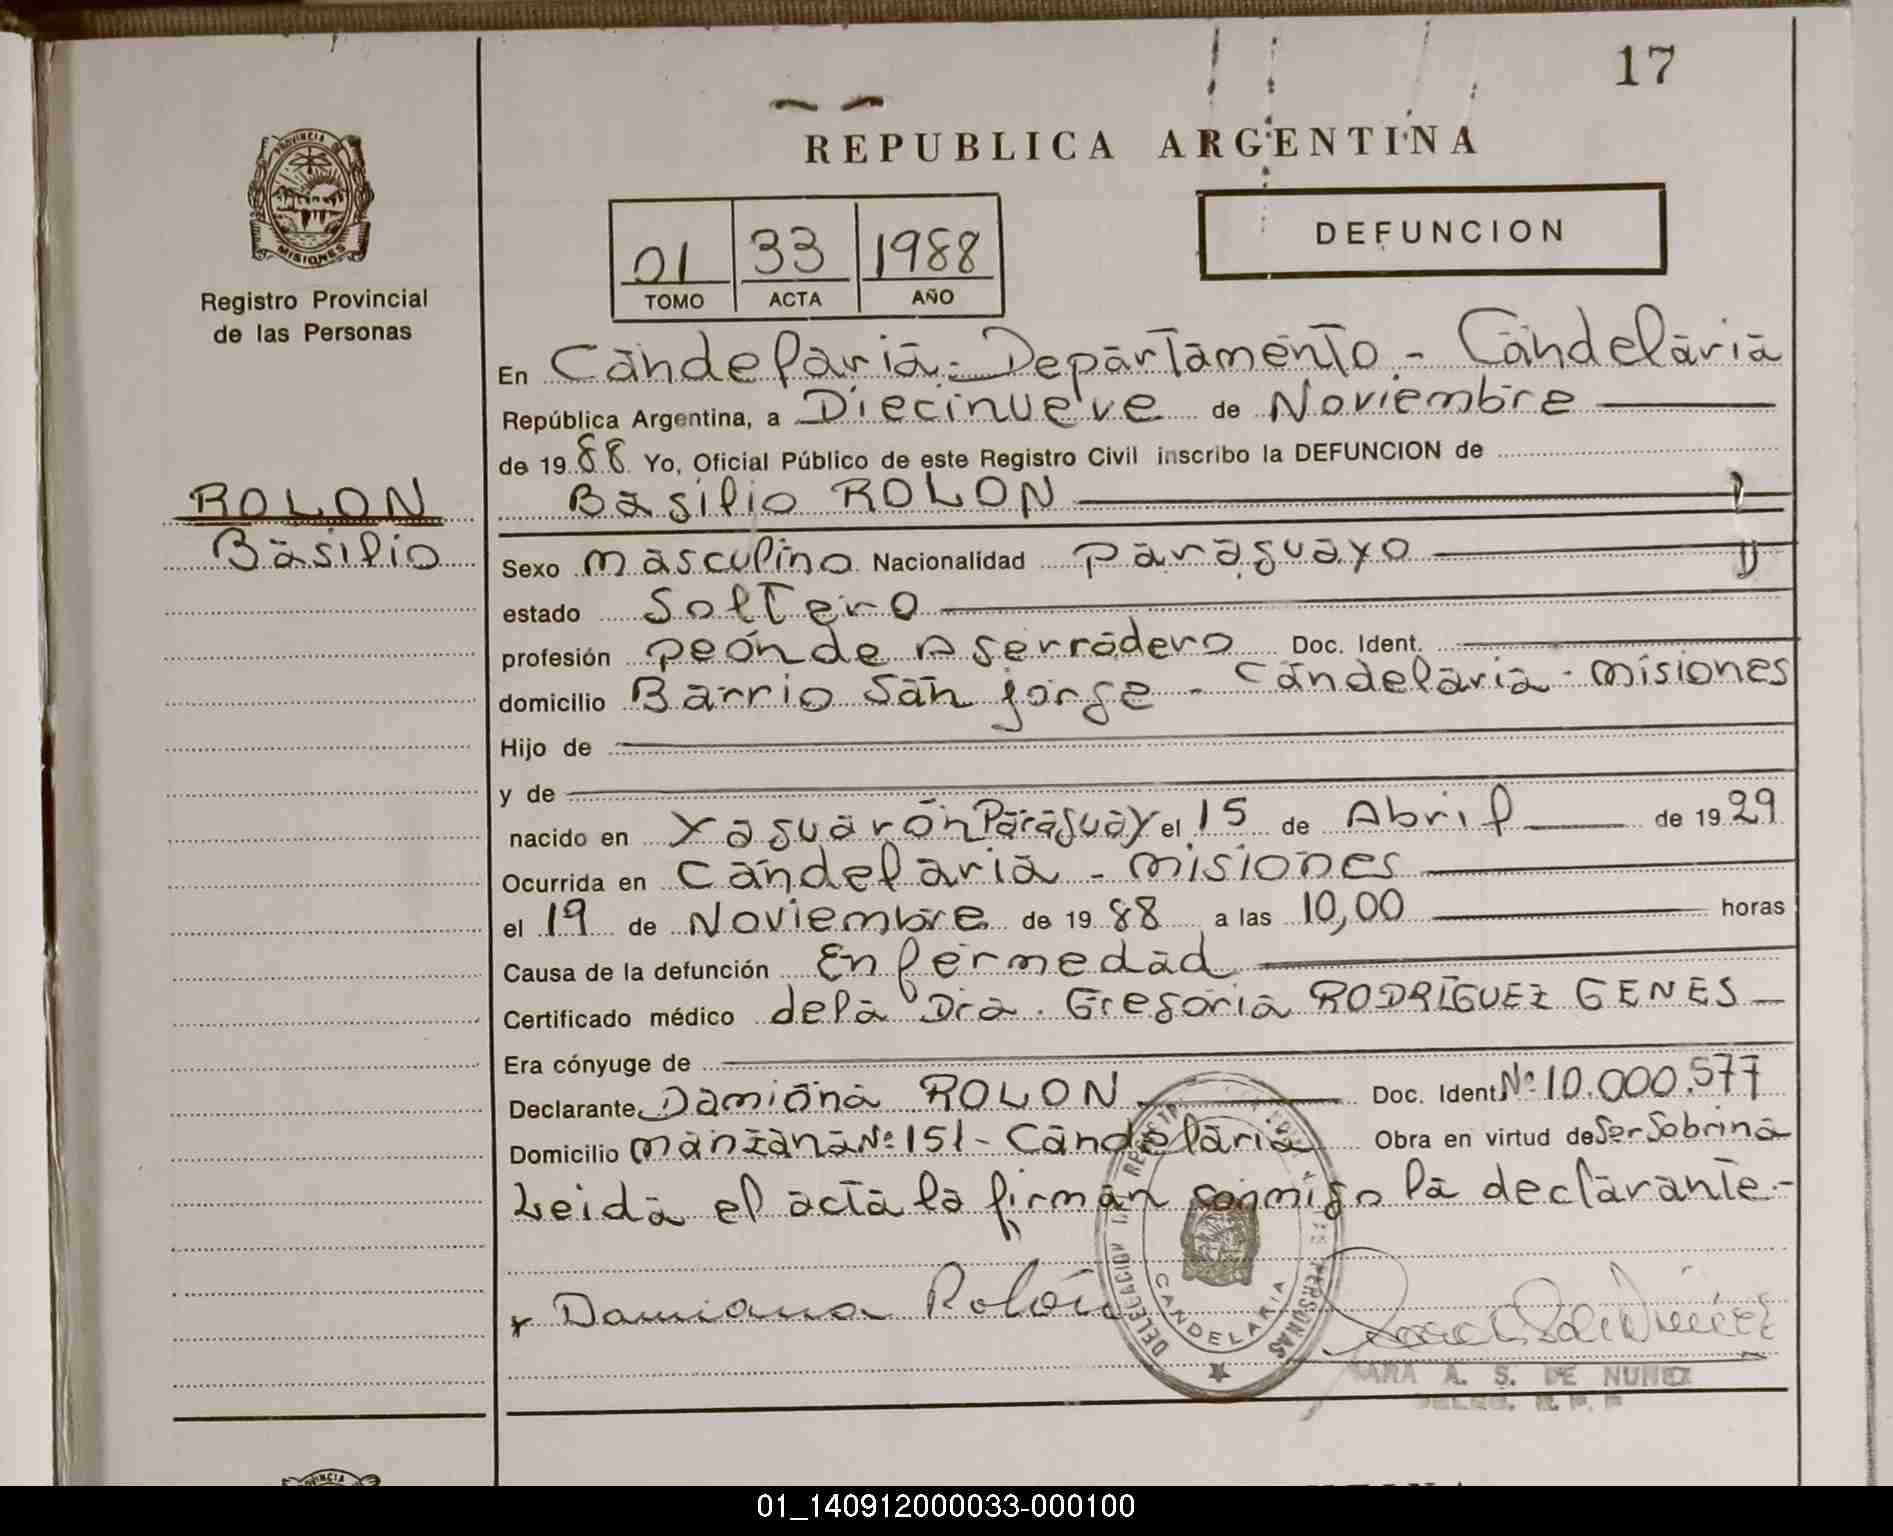 17
REPUBLICA ARGENTINA
PROVINCIA DE
MISIONES
Registro Provincial
de las Personas
01 33 1988
TOMO ACTA AÑO
DEFUNCION
En Candelaria - Departamento - Candelaria
República Argentina, a Diecinueve de Noviembre
de 1988 Yo, Oficial Público de este Registro Civil inscribo la DEFUNCION de
ROLON
Basilio
Basilio ROLON
Sexo masculino Nacionalidad paraguayo
estado Soltero
profesión peón de Aserradero Doc. Ident.
domicilio Barrio San Jorge - Candelaria - Misiones
Hijo de
y de
nacido en Yaguarón Paraguay el 15 de Abril de 1929
Ocurrida en Candelaria - Misiones
el 19 de Noviembre de 1988 a las 10,00 horas
Causa de la defunción Enfermedad
Certificado médico de la Dra. Gregoria RODRIGUEZ GENES
Era cónyuge de
Declarante Damiana ROLON Doc. Ident. Nº 10.000.577
Domicilio Manzana Nº 151 - Candelaria Obra en virtud de Ser Sobrina
Leida el acta la firman conmigo la declarante.-
x Damiana Rolón
DELEGACION PERSONAS
CANDELARIA
SARA A. S. DE NUÑEZ
PROVINCIA
01_140912000033-000100